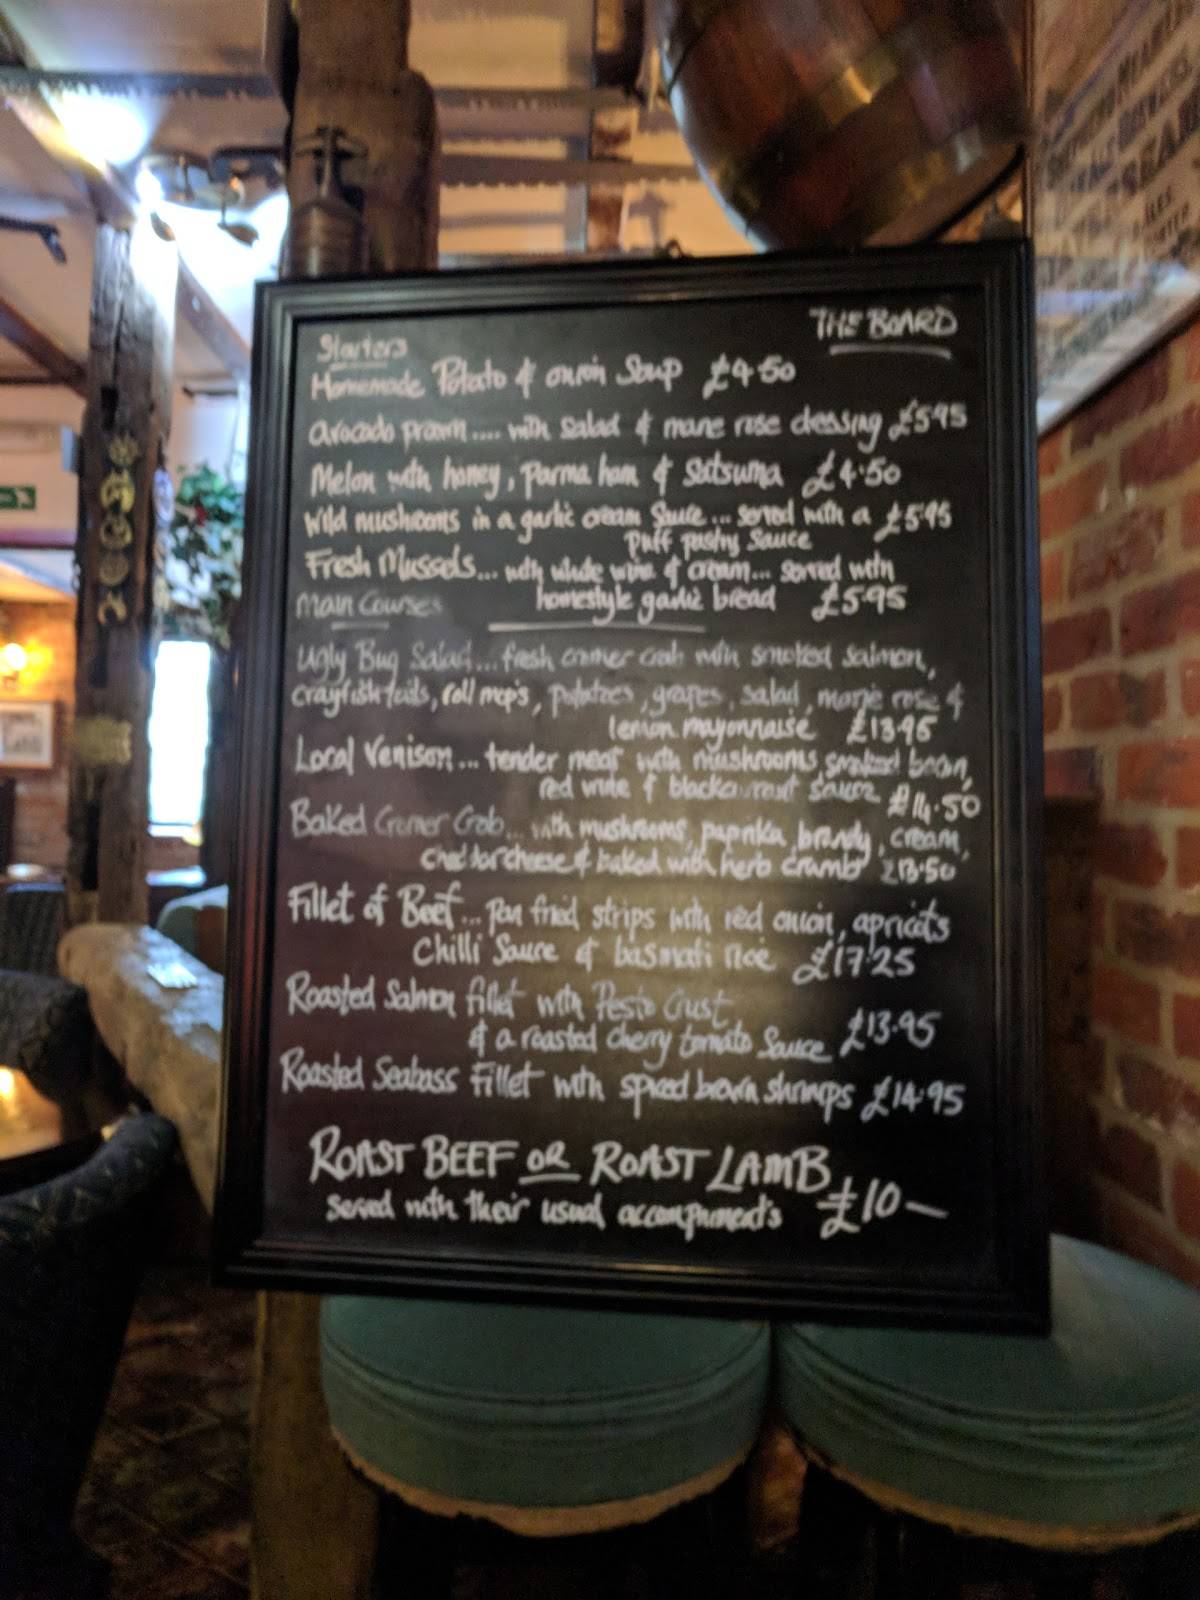 THE BOARD
Starters
Homemade Potato & onion Soup £4.50
Avocado prawn.... with salad & marie rose dressing £5.95
Melon with honey, parma ham & Satsuma £4.50
Wild mushrooms in a garlic cream Sauce... served with a £5.95
puff pastry Sauce
Fresh Mussels... with white wine & cream... served with
homestyle garlic bread £5.95
Main Courses
Ugly Bug Salad... fresh cromer crab with smoked salmon,
crayfish tails, roll mop's, potatoes, grapes, salad, marie rose &
lemon mayonnaise £13.95
Local Venison... tender meat with mushrooms, smoked bacon,
red wine & blackcurrant sauce £14.50
Baked Cromer Crab... with mushrooms, paprika, brandy, cream,
cheddar cheese & baked with herb crumb £13.50
Fillet of Beef... pan fried strips with red onion, apricots
Chilli Sauce & basmati rice £17.25
Roasted Salmon fillet with Pesto Crust
& a roasted cherry tomato Sauce £13.95
Roasted Seabass Fillet with spiced brown shrimps £14.95
ROAST BEEF OR ROAST LAMB
Served with their usual accompiments £10—